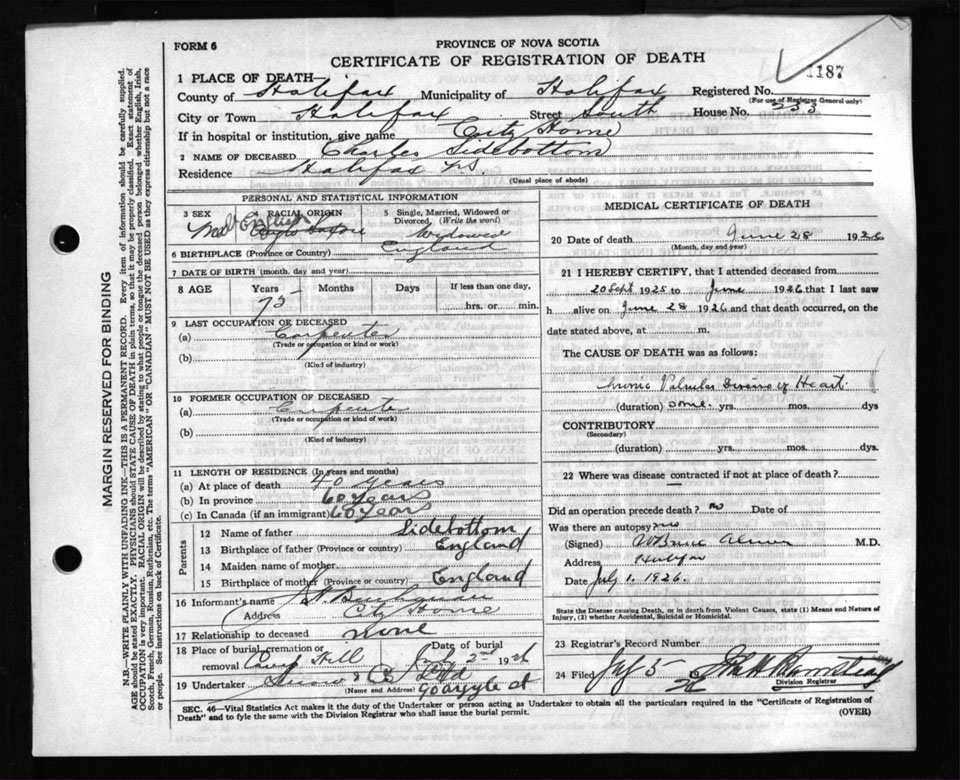 FORM 6
PROVINCE OF NOVA SCOTIA
CERTIFICATE OF REGISTRATION OF DEATH
1187
1 PLACE OF DEATH—
County of Halifax Municipality of Halifax Registered No.
(For use of Registrar General only)
City or Town Halifax Street South House No. 253
If in hospital or institution, give name City Home
2 NAME OF DECEASED Charles Sidebottom
Residence Halifax N.S.
(Usual place of abode)
PERSONAL AND STATISTICAL INFORMATION
3 SEX Male
4 RACIAL ORIGIN English Anglo Saxon
5 Single, Married, Widowed or Divorced, (Write the word) Widowed
6 BIRTHPLACE (Province or Country) England
7 DATE OF BIRTH (month, day and year)
8 AGE Years Months Days If less than one day,
73 hrs. or min.
9 LAST OCCUPATION OR DECEASED
(a) Carpenter
(Trade or occupation or kind or work)
(b)
(Kind of industry)
10 FORMER OCCUPATION OF DECEASED
(a) Carpenter
(Trade or occupation or kind of work)
(b)
(Kind of industry)
11 LENGTH OF RESIDENCE (In years and months)
(a) At place of death 40 years
(b) In province 60 Years
(c) In Canada (if an immigrant) 60 Years
Parents
12 Name of father Sidebottom
13 Birthplace of father (Province or country) England
14 Maiden name of mother
15 Birthplace of mother (Province or country) England
16 Informant's name Buchanan
Address City Home
17 Relationship to deceased none
18 Place of burial, cremation or removal Camp Hill
Date of burial July 2nd 1926
19 Undertaker Snow & Co Ltd
(Name and Address) 90 argyle st
MEDICAL CERTIFICATE OF DEATH
20 Date of death June 28 1926
(Month, day and year)
21 I HEREBY CERTIFY, that I attended deceased from
20 Sept 1925 to June 1926 that I last saw
h alive on June 28 1926 and that death occurred, on the
date stated above, at m.
The CAUSE OF DEATH was as follows:
Chronic Valvular Disease of Heart.
(duration) some yrs. mos. dys
CONTRIBUTORY
(Secondary)
(duration) yrs. mos. dys.
22 Where was disease contracted if not at place of death?
Did an operation precede death? no Date of
Was there an autopsy? no
(Signed) W Bruce Almon M.D.
Address Halifax
Date July 1. 1926.
State the Disease causing Death, or in death from Violent Causes, state (1) Means and Nature of
Injury, (2) whether Accidental, Suicidal or Homicidal.
23 Registrar's Record Number
24 Filed July 5 26
Division Registrar
SEC. 46—Vital Statistics Act makes it the duty of the Undertaker or person acting as Undertaker to obtain all the particulars required in the "Certificate of Registration of
Death" and to fyle the same with the Division Registrar who shall issue the burial permit. (OVER)
MARGIN RESERVED FOR BINDING
N.B.—WRITE PLAINLY WITH UNFADING INK—THIS IS A PERMANENT RECORD. Every item of information should be carefully supplied.
AGE should be stated EXACTLY. PHYSICIANS should STATE CAUSE OF DEATH in plain terms, so that it may be properly classified. Exact statement of
OCCUPATION is very important. RACIAL ORIGIN will be described by stating to what people or race the deceased person belonged whether English, Irish,
Scotch, French, German, Russian, Ruthenian, etc. The terms "AMERICAN" OR "CANADIAN" MUST NOT BE USED as they express citizenship but not a race
or people. See instructions on back of Certificate.